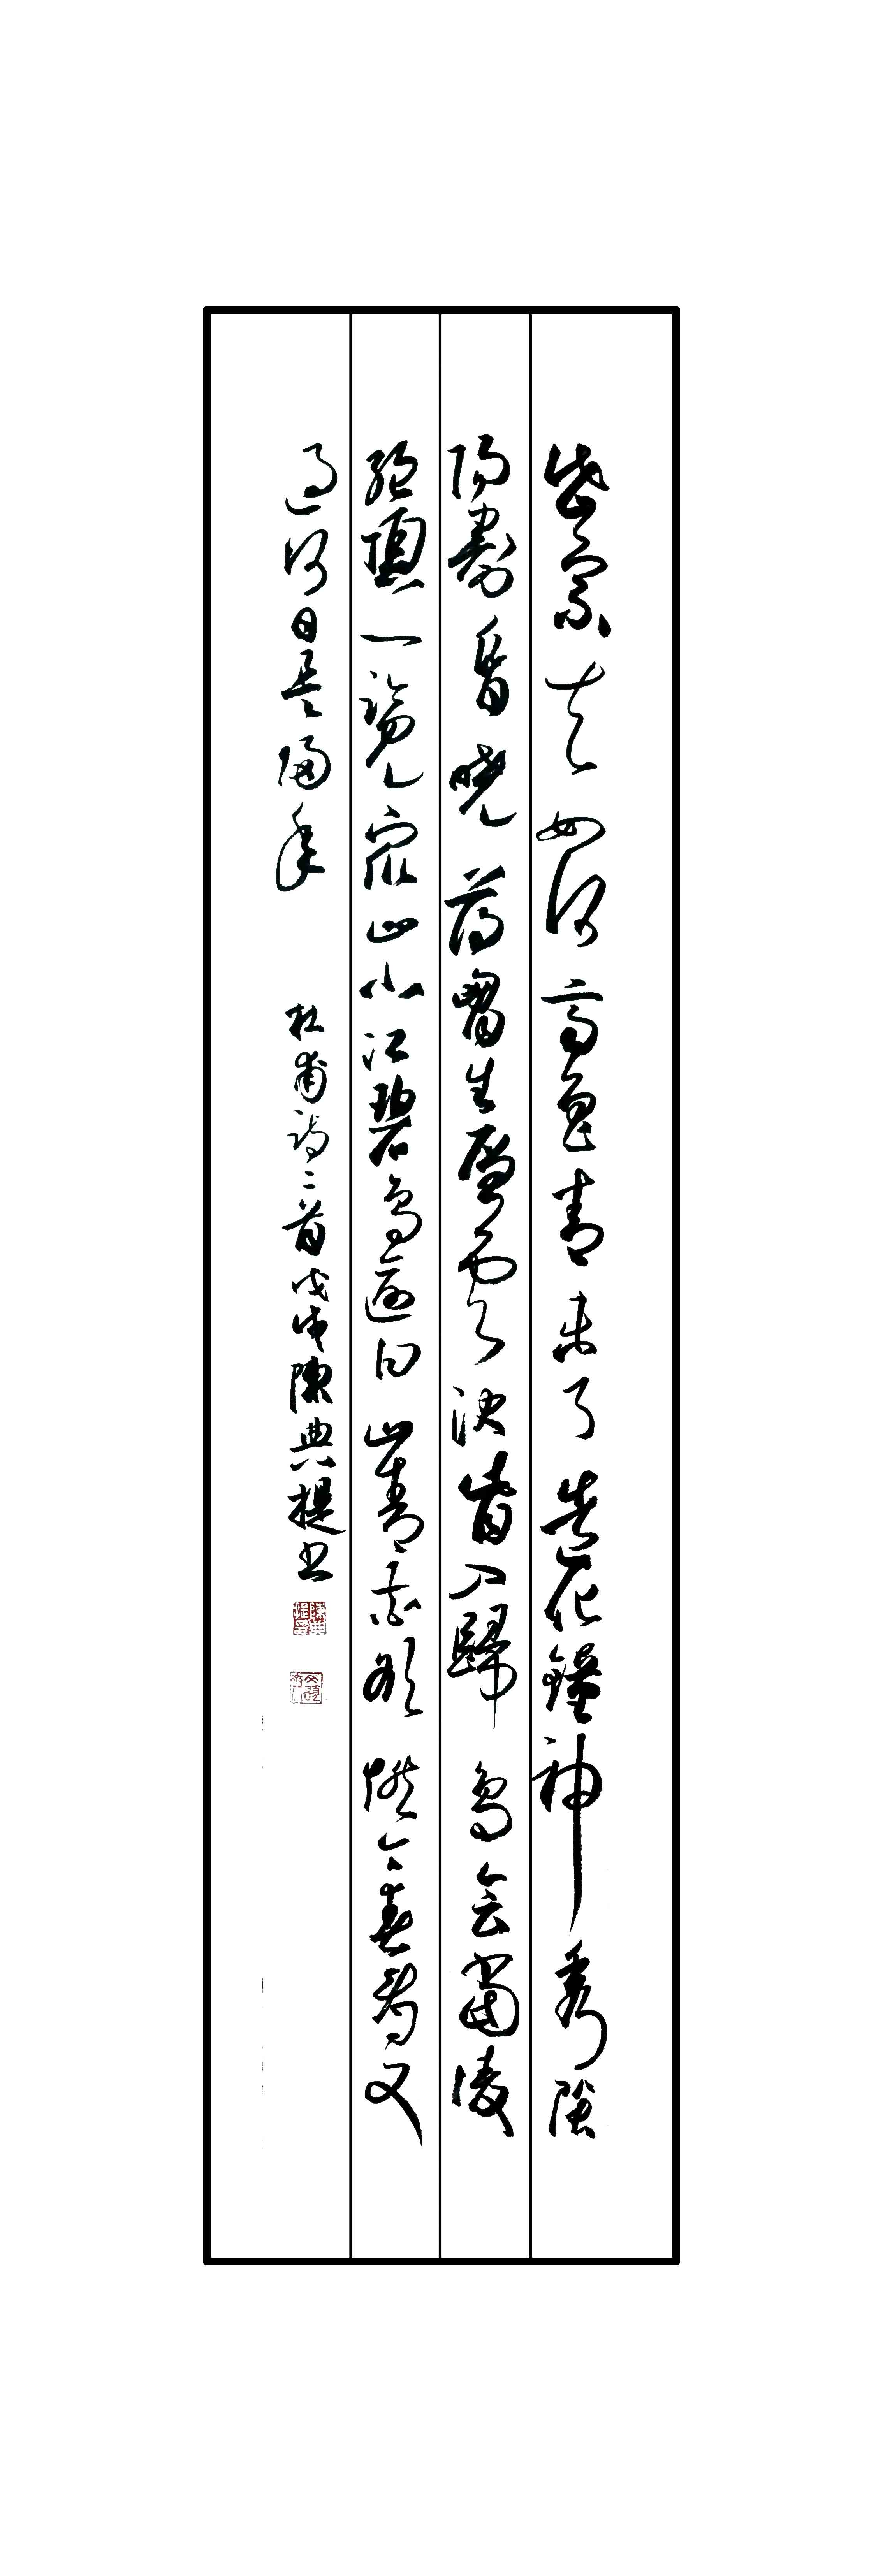 岱宗夫如何齊魯青未了造化鐘神秀陰
陽劃昏曉蕩胸生層雲決眥入歸鳥會當凌
絕頂一覽眾山小江碧鳥逾白山青花欲燃今春看又
過何日是歸年 杜甫詩二首戊申陳典提書
陳典提印